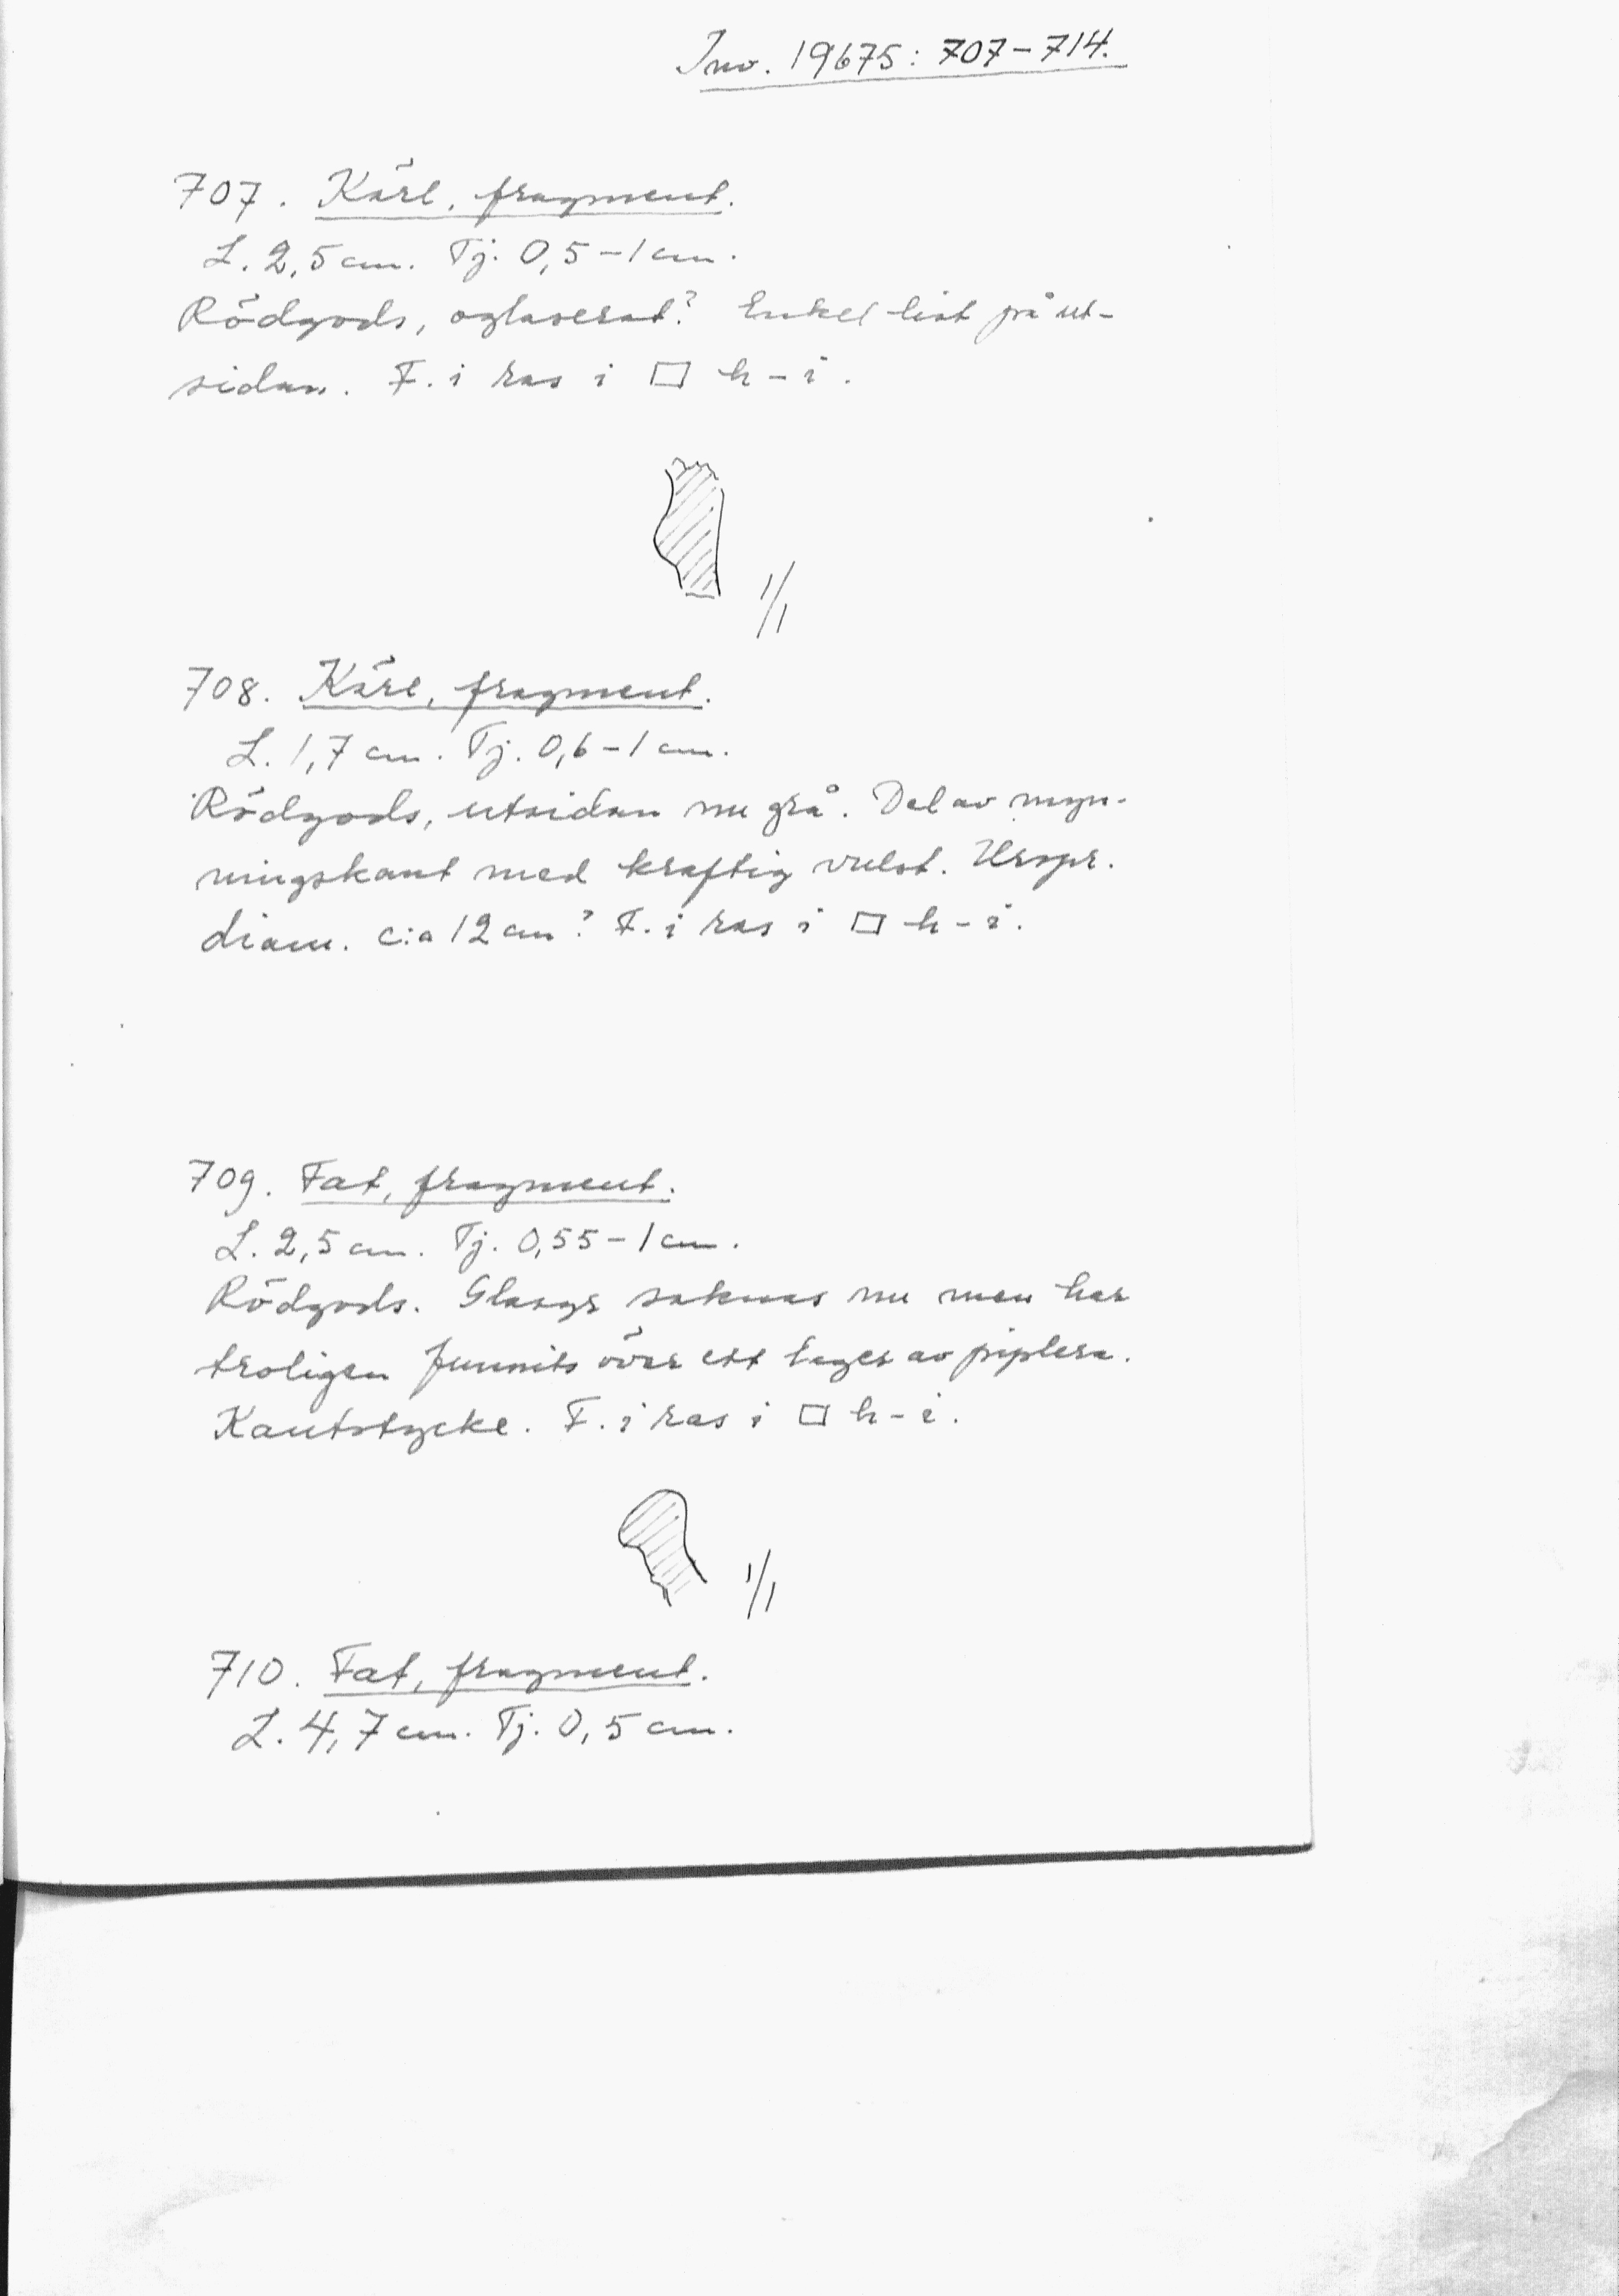 Inv. 19675: 707-714.
707. Kärl, fragment.
L. 2,5 cm. Tj. 0,5-1 cm.
Rödgods, oglaserat? Enkel list på ut-
sidan. F. i ras i □ h-i.
1/1
708. Kärl, fragment.
L. 1,7 cm. Tj. 0,6-1 cm.
Rödgods, utsidan nu grå. Del av myn-
ningskant med kraftig vulst. Urspr.
diam. c:a 12 cm? F. i ras i □ h-i.
709. Fat, fragment.
L. 2,5 cm. Tj. 0,55-1 cm.
Rödgods. Glasyr saknas nu men har
troligen funnits över ett lager av piplera.
Kantstycke. F. i ras i □ h-i.
1/1
710. Fat, fragment.
L. 4,7 cm. Tj. 0,5 cm.